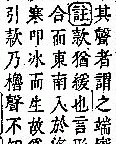 其聲者謂之端
註款猶緩也言形
合而東南入於
寒叩冰而生故
引款乃櫓聲不